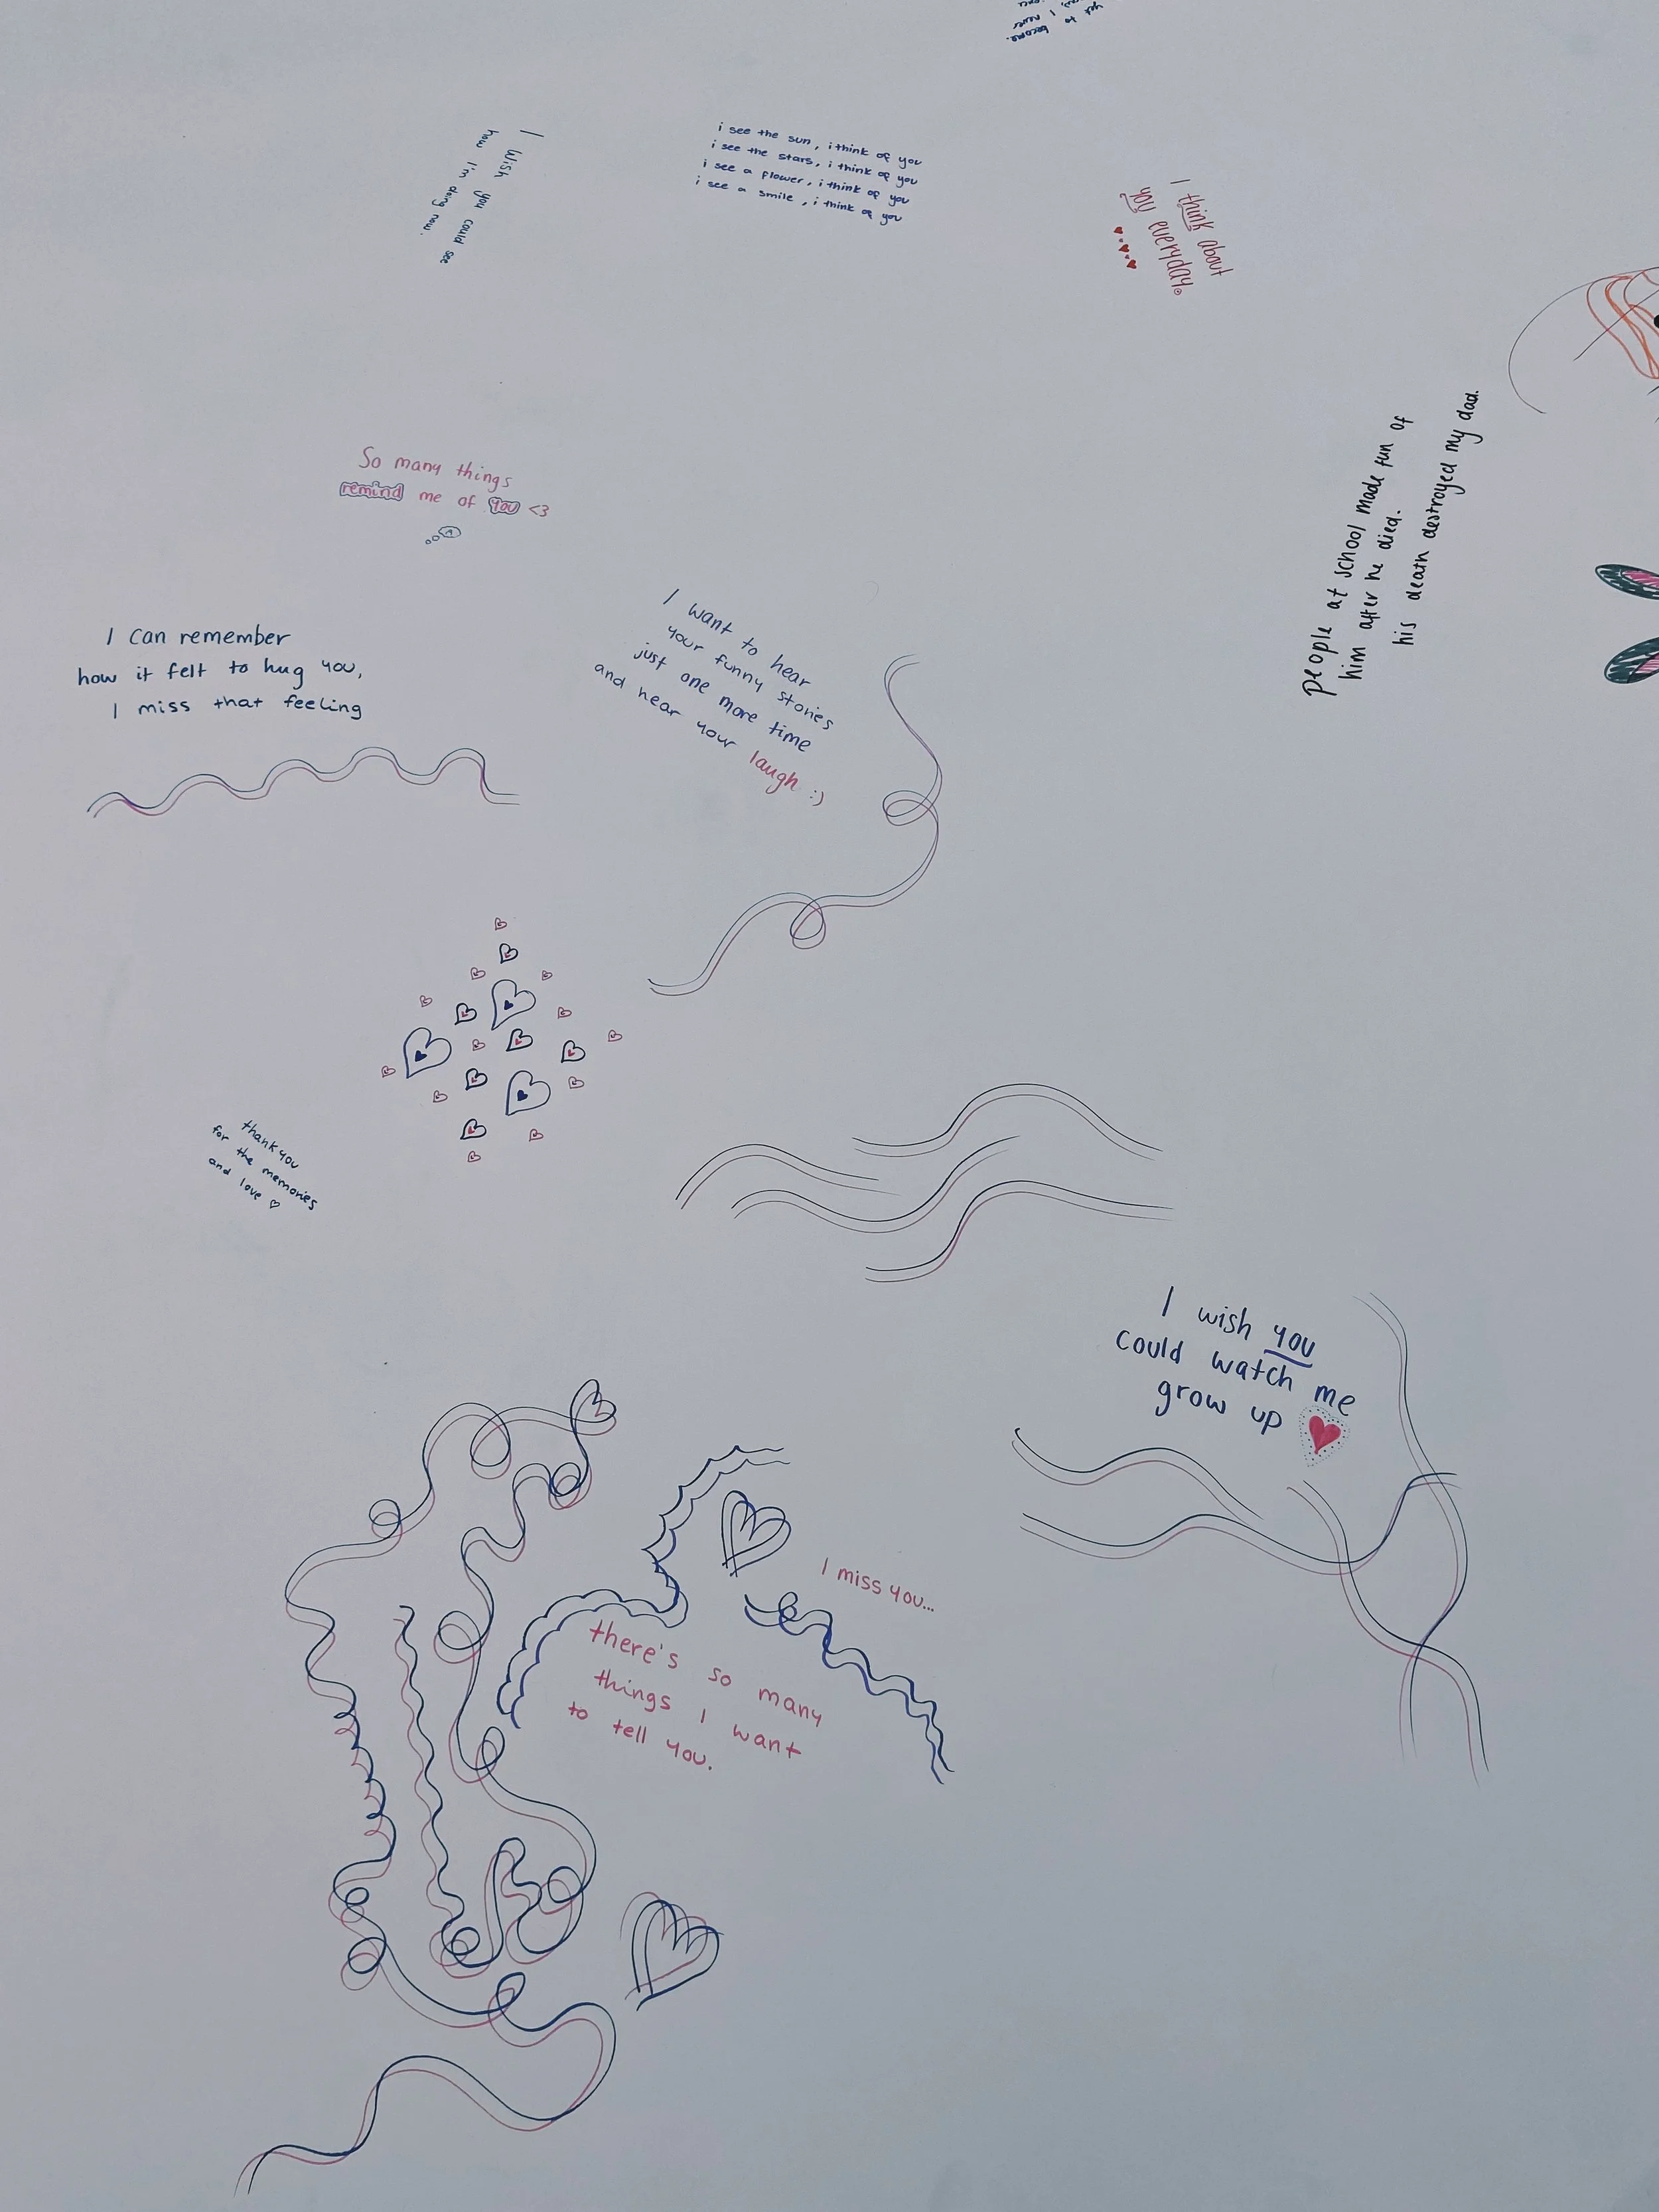 yet to
I never
become.
I wish you could see
how I'm doing now.
i see the sun, i think of you
i see the stars, i think of you
i see a flower, i think of you
i see a smile, i think of you
I think about
you everyday.
So many things
remind me of you <3
people at school made fun of
him after he died.
his death destroyed my dad.
I can remember
how it felt to hug you,
I miss that feeling
I want to hear
your funny stories
just one more time
and hear your laugh :)
thank you
for the memories
and love ♡
I wish you
could watch me
grow up
I miss you...
there's so many
things I want
to tell you.